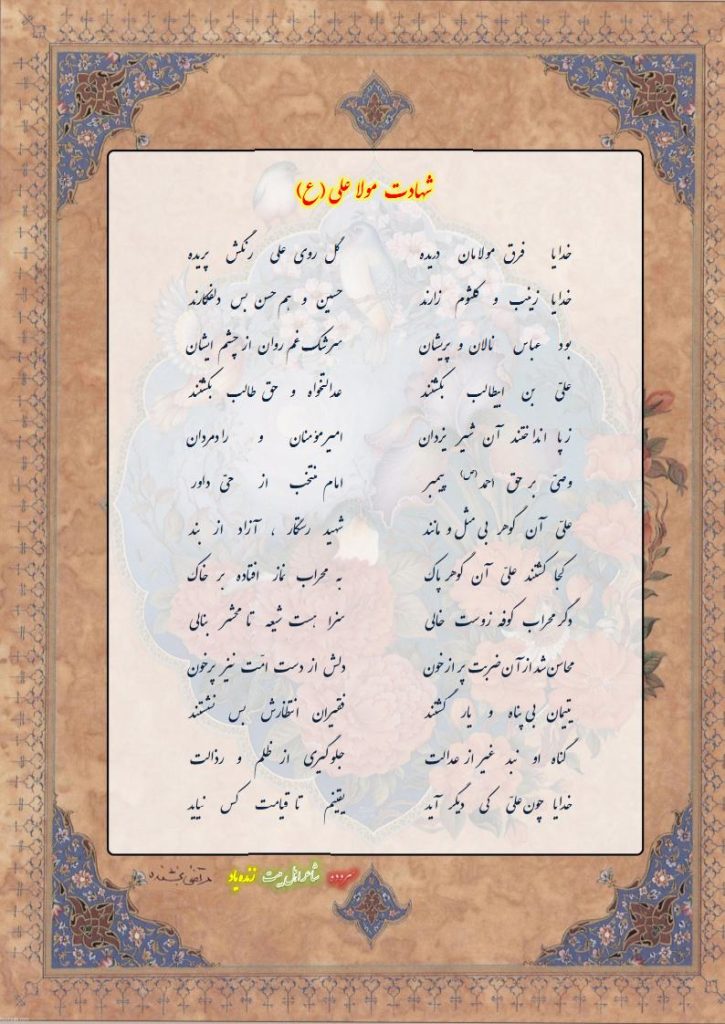 شهادت مولا علی (ع)
خدایا فرق مولامان دریده گل روی علی رنگش پریده
خدایا زینب و کلثوم زارند حسین و هم حسن بس دلفکارند
بود عباس نالان و پریشان سرشک غم روان از چشم ایشان
علیّ بن ابیطالب بکشتند عدالتخواه و حق طالب بکشتند
ز پا انداختند آن شیر یزدان امیر مؤمنان و رادمردان
وصیّ بر حق احمد (ص) پیمبر امام منتخب از حیّ داور
علیّ آن گوهر بی مثل و مانند شهید رستگار ، آزاد از بند
کجا کشتند علیّ آن گوهر پاک به محراب نماز افتاده بر خاک
دگر محراب کوفه زوست خالی سزا هست شیعه تا محشر بنالی
محاسن شد از آن ضربت پر از خون دلش از دست امّت نیز پرخون
یتیمان بی پناه و یار گشتند فقیران انتظارش بس نشستند
گناه او نبد غیر از عدالت جلوگیری از ظلم و رذالت
خدایا چون علیّ کی دیگر آید یقینم تا قیامت کس نیاید
شاعر اهل بیت زنده یاد